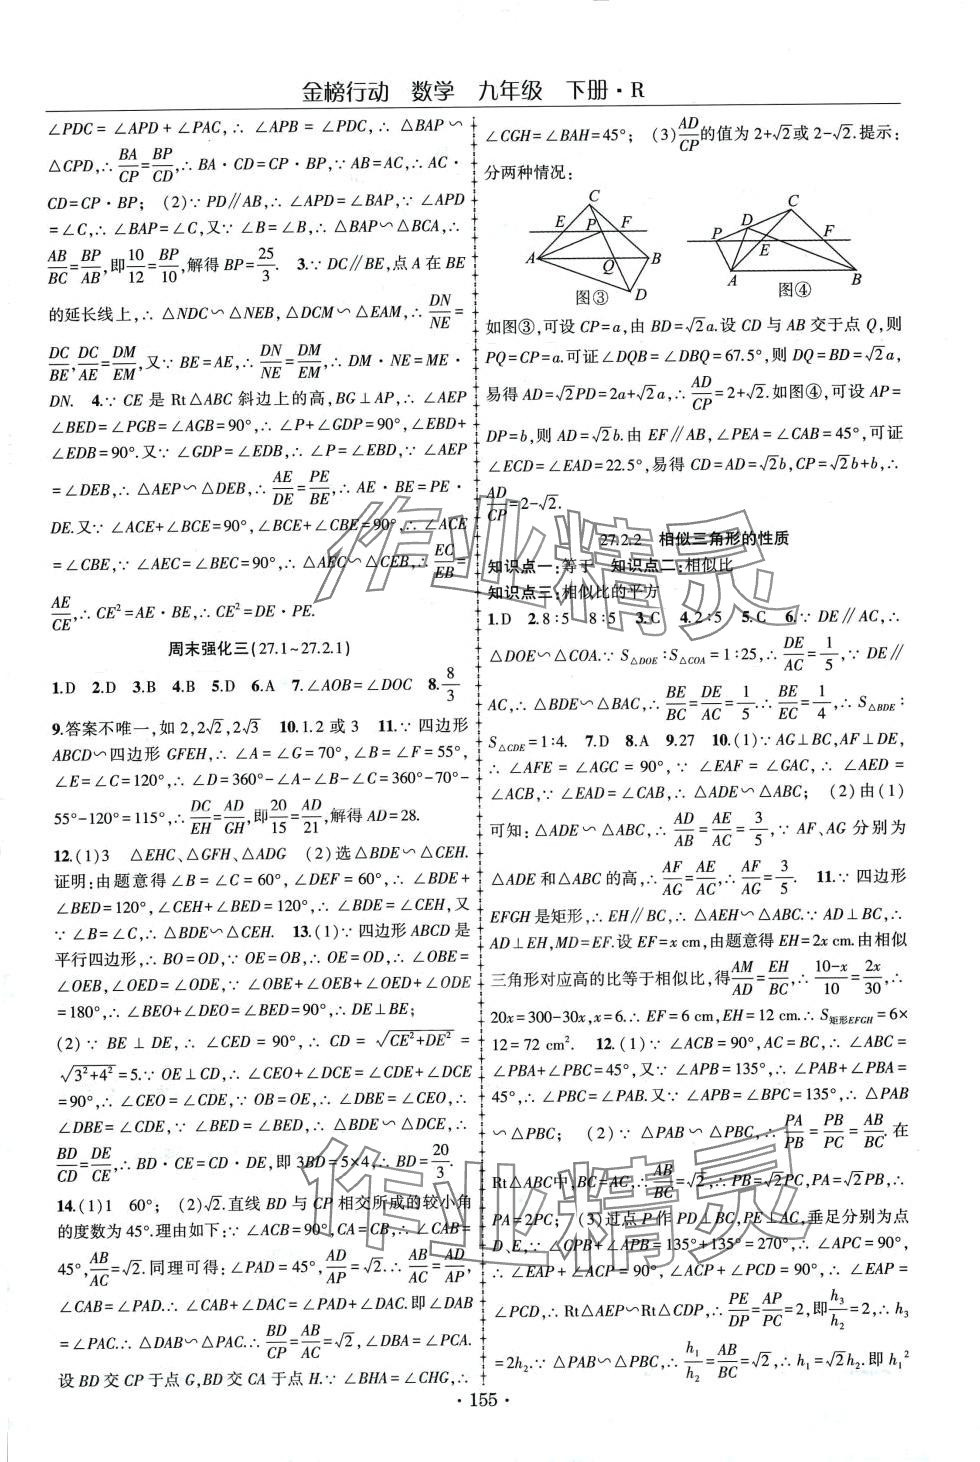 金榜行动 数学 九年级 下册·R
∠PDC=∠APD+∠PAC,∴∠APB=∠PDC,∴△BAP∽
△CPD,∴BA/CP=BP/CD,∴BA·CD=CP·BP,∵AB=AC,∴AC·
CD=CP·BP; (2)∵PD∥AB,∴∠APD=∠BAP,∵∠APD
=∠C,∴∠BAP=∠C,又∵∠B=∠B,∴△BAP∽△BCA,∴
AB/BC=BP/AB,即10/12=BP/10,解得BP=25/3. 3.∵DC∥BE,点A在BE
的延长线上,∴△NDC∽△NEB,△DCM∽△EAM,∴DN/NE=
DC/BE,DC/AE=DM/EM,又∵BE=AE,∴DN/NE=DM/EM,∴DM·NE=ME·
DN. 4.∵CE是Rt△ABC斜边上的高,BG⊥AP,∴∠AEP
=∠BED=∠PGB=∠AGB=90°,∴∠P+∠GDP=90°,∠EBD+
∠EDB=90°.又∵∠GDP=∠EDB,∴∠P=∠EBD,∵∠AEP
=∠DEB,∴△AEP∽△DEB,∴AE/DE=PE/BE,∴AE·BE=PE·
DE.又∵∠ACE+∠BCE=90°,∠BCE+∠CBE=90°,∴∠ACE
=∠CBE,∵∠AEC=∠BEC=90°,∴△AEC∽△CEB,∴EC/EB=
AE/CE,∴CE²=AE·BE,∴CE²=DE·PE.
周末强化三(27.1~27.2.1)
1.D 2.D 3.B 4.B 5.D 6.A 7.∠AOB=∠DOC 8.8/3
9.答案不唯一,如2,2√2,2√3 10.1.2或3 11.∵四边形
ABCD∽四边形GFEH,∴∠A=∠G=70°,∠B=∠F=55°,
∠E=∠C=120°,∴∠D=360°-∠A-∠B-∠C=360°-70°-
55°-120°=115°,∴DC/EH=AD/GH,即20/15=AD/21,解得AD=28.
12.(1)3 △EHC、△GFH、△ADG (2)选△BDE∽△CEH.
证明:由题意得∠B=∠C=60°,∠DEF=60°,∴∠BDE+
∠BED=120°,∠CEH+∠BED=120°,∴∠BDE=∠CEH,又
∵∠B=∠C,∴△BDE∽△CEH. 13.(1)∵四边形ABCD是
平行四边形,∴BO=OD,∵OE=OB,∴OE=OD,∴∠OBE=
∠OEB,∠OED=∠ODE,∵∠OBE+∠OEB+∠OED+∠ODE
=180°,∴∠BEO+∠DEO=∠BED=90°,∴DE⊥BE;
(2)∵BE⊥DE,∴∠CED=90°,∴CD=√(CE²+DE²)=
√(3²+4²)=5.∵OE⊥CD,∴∠CEO+∠DCE=∠CDE+∠DCE
=90°,∴∠CEO=∠CDE,∵OB=OE,∴∠DBE=∠CEO,∴
∠DBE=∠CDE,∵∠BED=∠BED,∴△BDE∽△DCE,∴
BD/CD=DE/CE,∴BD·CE=CD·DE,即3BD=5×4,∴BD=20/3.
14.(1)1 60°; (2)√2.直线BD与CP相交所成的较小角
的度数为45°.理由如下:∵∠ACB=90°,CA=CB,∴∠CAB=
45°,AB/AC=√2.同理可得:∠PAD=45°,AD/AP=√2.∴AB/AC=AD/AP,
∠CAB=∠PAD.∴∠CAB+∠DAC=∠PAD+∠DAC.即∠DAB
=∠PAC.∴△DAB∽△PAC.∴BD/CP=AB/AC=√2,∠DBA=∠PCA.
设BD交CP于点G,BD交CA于点H.∵∠BHA=∠CHG,∴
∠CGH=∠BAH=45°; (3)AD/CP的值为2+√2或2-√2.提示:
分两种情况:
C
E
P
F
A
Q
B
D
图③
C
D
P
E
F
A
B
图④
如图③,可设CP=a,由BD=√2a.设CD与AB交于点Q,则
PQ=CP=a.可证∠DQB=∠DBQ=67.5°,则DQ=BD=√2a,
易得AD=√2PD=2a+√2a,∴AD/CP=2+√2.如图④,可设AP=
DP=b,则AD=√2b.由EF∥AB,∠PEA=∠CAB=45°,可证
∠ECD=∠EAD=22.5°,易得CD=AD=√2b,CP=√2b+b,∴
AD/CP=2-√2.
27.2.2 相似三角形的性质
知识点一:等于 知识点二:相似比
知识点三:相似比的平方
1.D 2.8:5 8:5 3.C 4.2:5 5.C 6.∵DE∥AC,∴
△DOE∽△COA.∵S△DOE:S△COA=1:25,∴DE/AC=1/5,∵DE∥
AC,∴△BDE∽△BAC,∴BE/BC=DE/AC=1/5.∴BE/EC=1/4,∴S△BDE:
S△CDE=1:4. 7.D 8.A 9.27 10.(1)∵AG⊥BC,AF⊥DE,
∴∠AFE=∠AGC=90°,∵∠EAF=∠GAC,∴∠AED=
∠ACB,∵∠EAD=∠CAB,∴△ADE∽△ABC; (2)由(1)
可知:△ADE∽△ABC,∴AD/AB=AE/AC=3/5,∵AF、AG分别为
△ADE和△ABC的高,∴AF/AG=AE/AC,∴AF/AG=3/5. 11.∵四边形
EFGH是矩形,∴EH∥BC,∴△AEH∽△ABC.∵AD⊥BC,∴
AD⊥EH,MD=EF.设EF=x cm,由题意得EH=2x cm.由相似
三角形对应高的比等于相似比,得AM/AD=EH/BC,∴(10-x)/10=2x/30,∴
20x=300-30x,x=6.∴EF=6 cm,EH=12 cm.∴S矩形EFGH=6×
12=72 cm². 12.(1)∵∠ACB=90°,AC=BC,∴∠ABC=
∠PBA+∠PBC=45°,又∵∠APB=135°,∴∠PAB+∠PBA=
45°,∴∠PBC=∠PAB.又∵∠APB=∠BPC=135°,∴△PAB
∽△PBC; (2)∵△PAB∽△PBC,∴PA/PB=PB/PC=AB/BC.在
Rt△ABC中,BC=AC,∴AB/BC=√2,∴PB=√2PC,PA=√2PB,∴
PA=2PC; (3)过点P作PD⊥BC,PE⊥AC,垂足分别为点
D、E,∵∠CPB+∠APB=135°+135°=270°,∴∠APC=90°,
∴∠EAP+∠ACP=90°,∠ACP+∠PCD=90°,∴∠EAP=
∠PCD,∴Rt△AEP∽Rt△CDP,∴PE/DP=AP/PC=2,即h₃/h₂=2,∴h₃
=2h₂.∵△PAB∽△PBC,∴h₁/h₂=AB/BC=√2,∴h₁=√2h₂.即h₁²
·155·
作业精灵
作业精灵